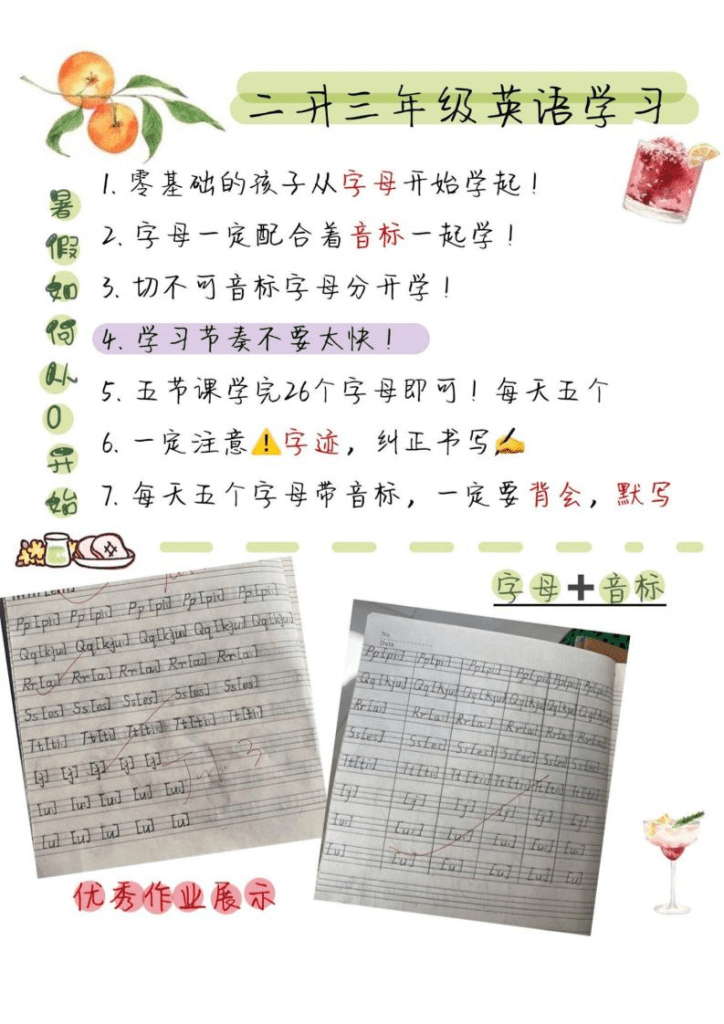 二升三年级英语学习
暑假如何从0开始
1. 零基础的孩子从字母开始学起！
2. 字母一定配合着音标一起学！
3. 切不可音标字母分开学！
4. 学习节奏不要太快！
5. 五节课学完26个字母即可！每天五个
6. 一定注意⚠️字迹，纠正书写✍️
7. 每天五个字母带音标，一定要背会，默写
字母➕音标
Pp[pi:] Pp[pi:] Pp[pi:] Pp[pi:] Pp[pi:]
Qq[kju:] Qq[kju:] Qq[kju:] Qq[kju:] Qq[kju:]
Rr[a:] Rr[a:] Rr[a:] Rr[a:] Rr[a:]
Ss[es] Ss[es] Ss[es] Ss[es] Ss[es]
Tt[ti:] Tt[ti:] Tt[ti:] Tt[ti:] Tt[ti:]
[u:] [u:] [u:] [u:] [u:]
[u] [u] [u] [u] [u]
No.
Date
Pp[pi:] Pp[pi:] Pp[pi:] Pp[pi:] Pp[pi:] Pp[pi:]
Qq[kju:] Qq[kju:] Qq[kju:] Qq[kju:] Qq[kju:] Qq[kju:]
Rr[a:] Rr[a:] Rr[a:] Rr[a:] Rr[a:] Rr[a:]
Ss[es] Ss[es] Ss[es] Ss[es] Ss[es] Ss[es]
Tt[ti:] Tt[ti:] Tt[ti:] Tt[ti:] Tt[ti:] Tt[ti:]
[u:] [u:] [u:] [u:] [u:] [u:]
[u] [u] [u] [u] [u] [u]
优秀作业展示